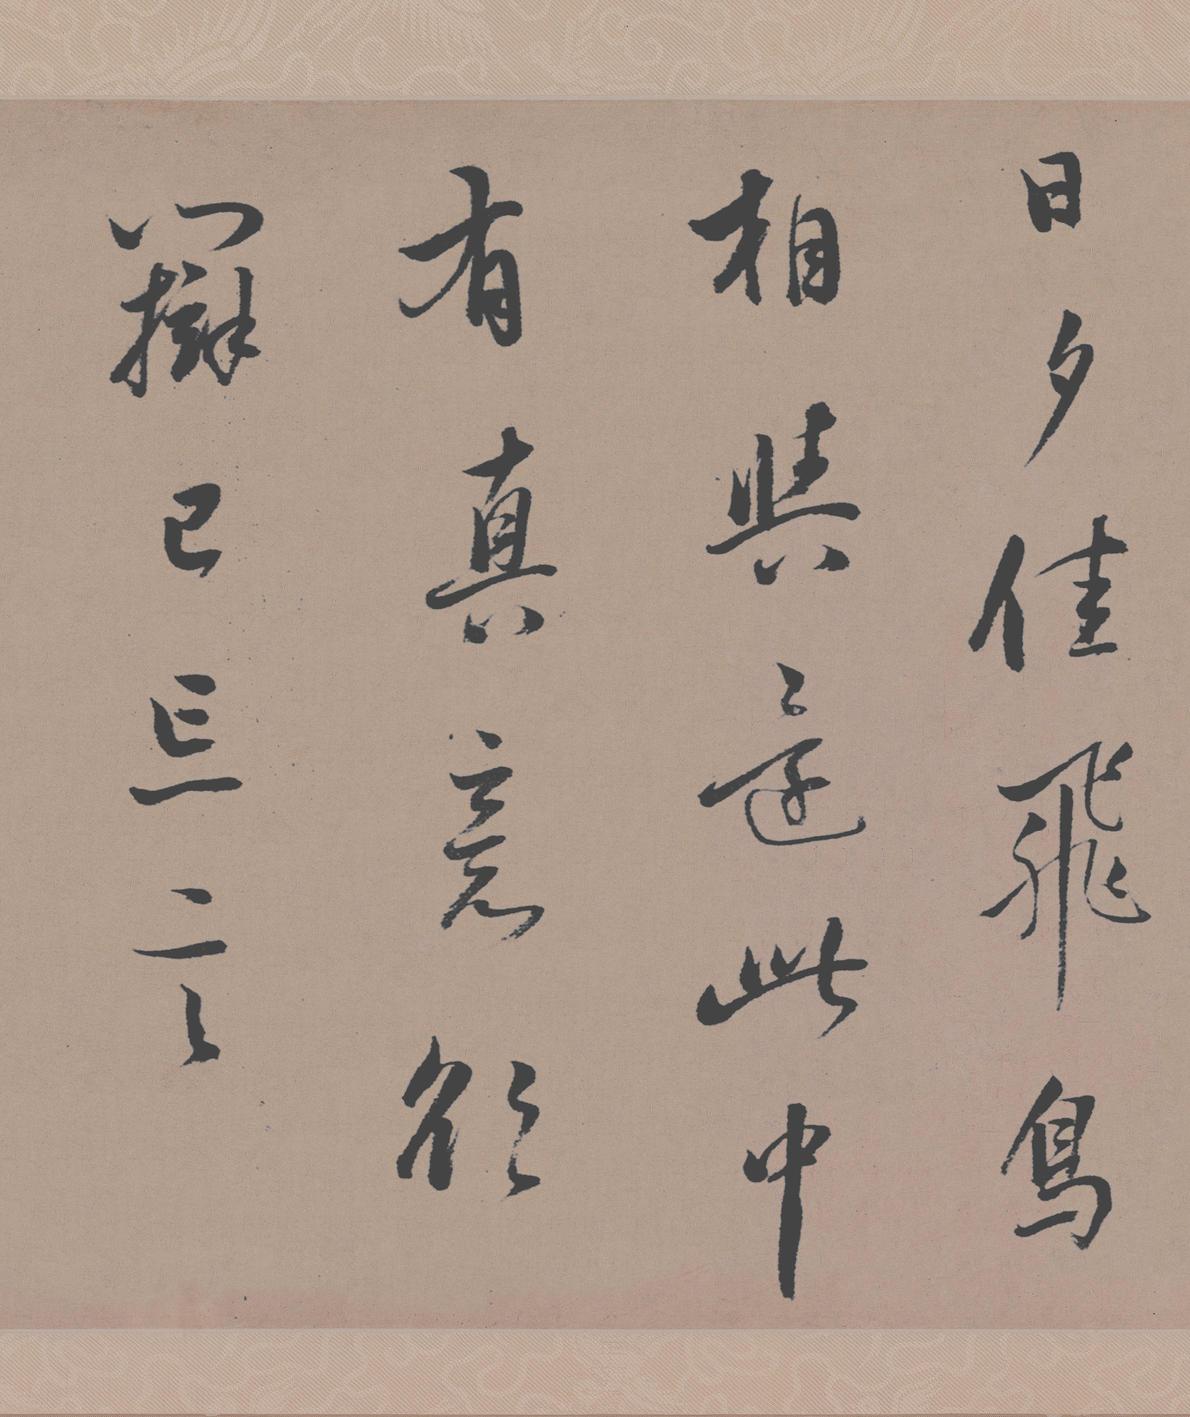 日夕佳飛鳥
相與還此中
有真意欲
辯已忘言